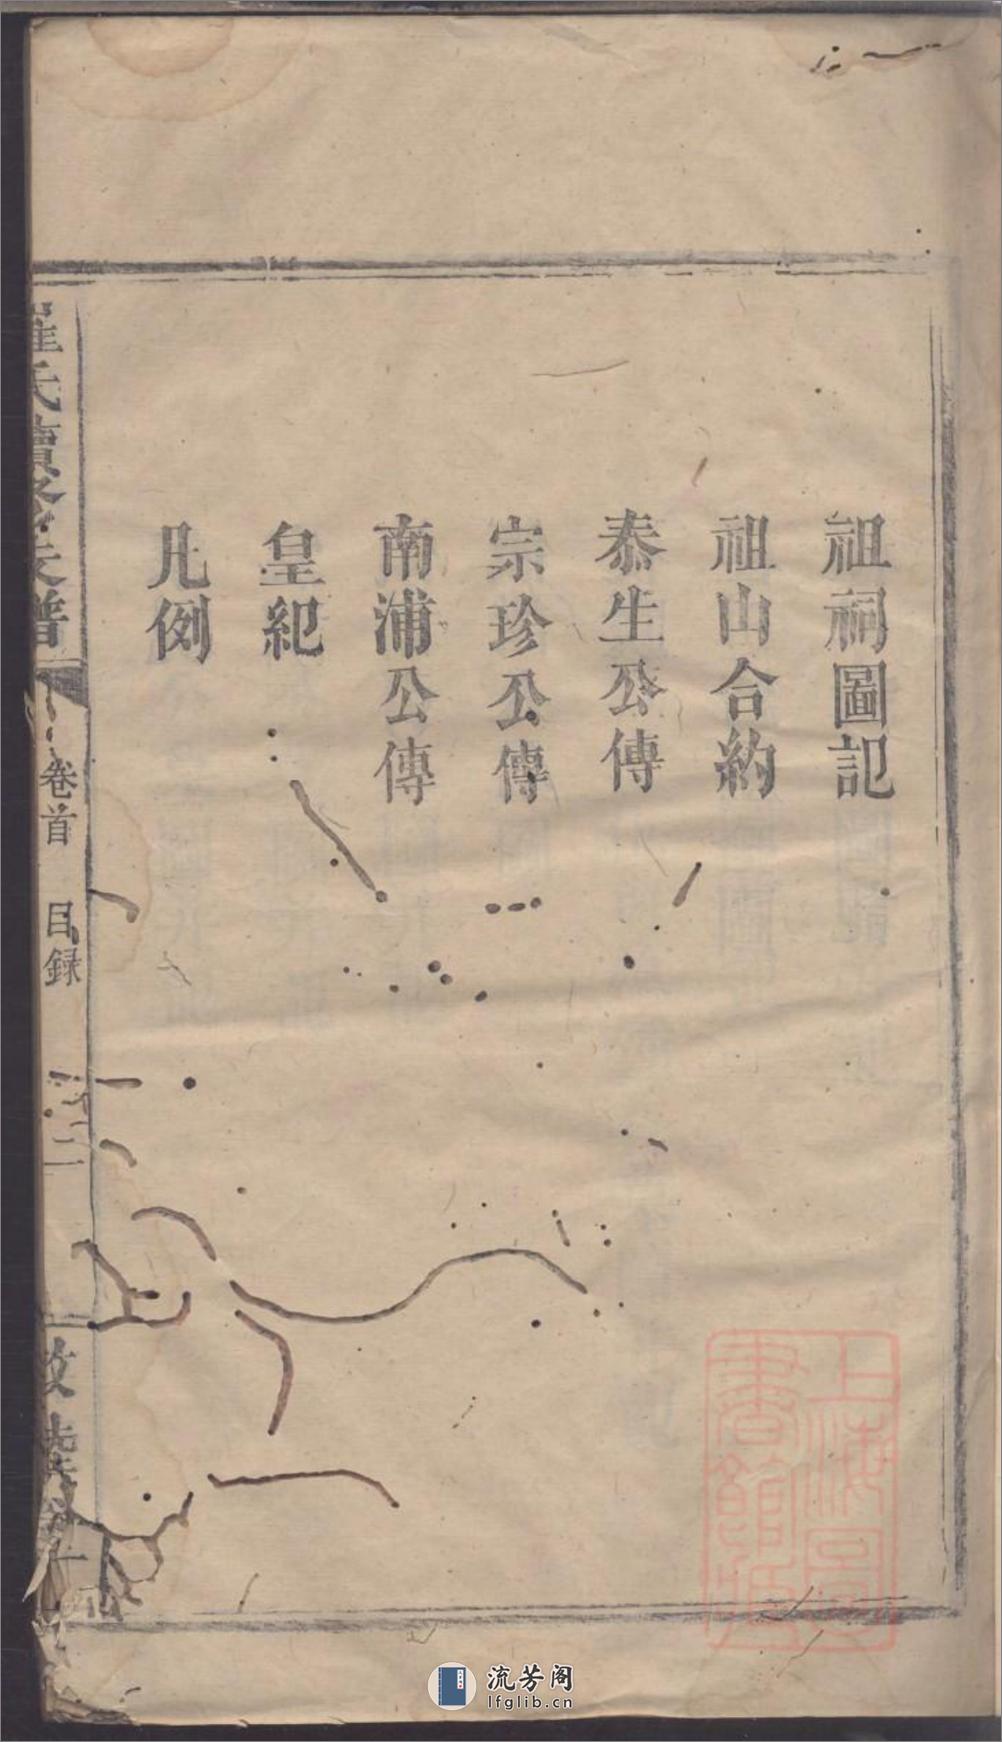 祖祠圖記
祖山合約
泰生公傳
宗珍公傳
南浦公傳
皇紀
凡例
崔氏續修支譜
卷首 目録
二
敦
上海圖書館藏
流芳阁
lfglib.cn